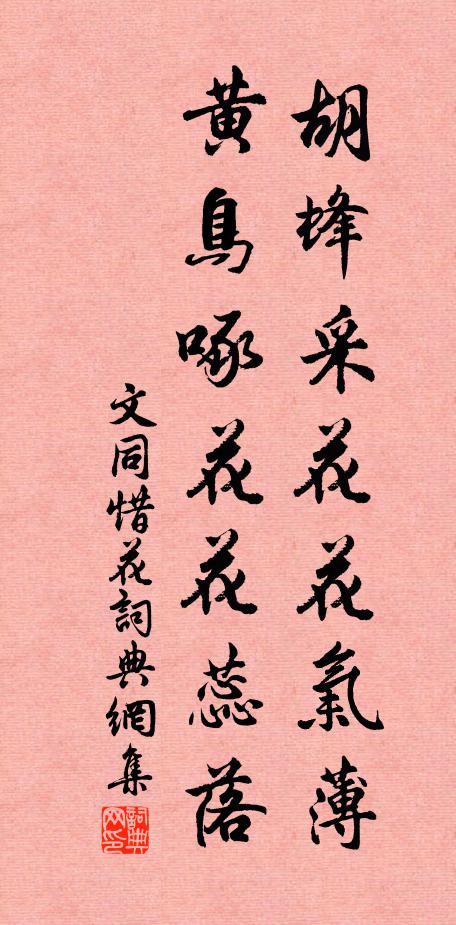 胡蜂采花花氣薄
黃鳥啄花花蕊落
文同惜花詞典網集
詞典网印